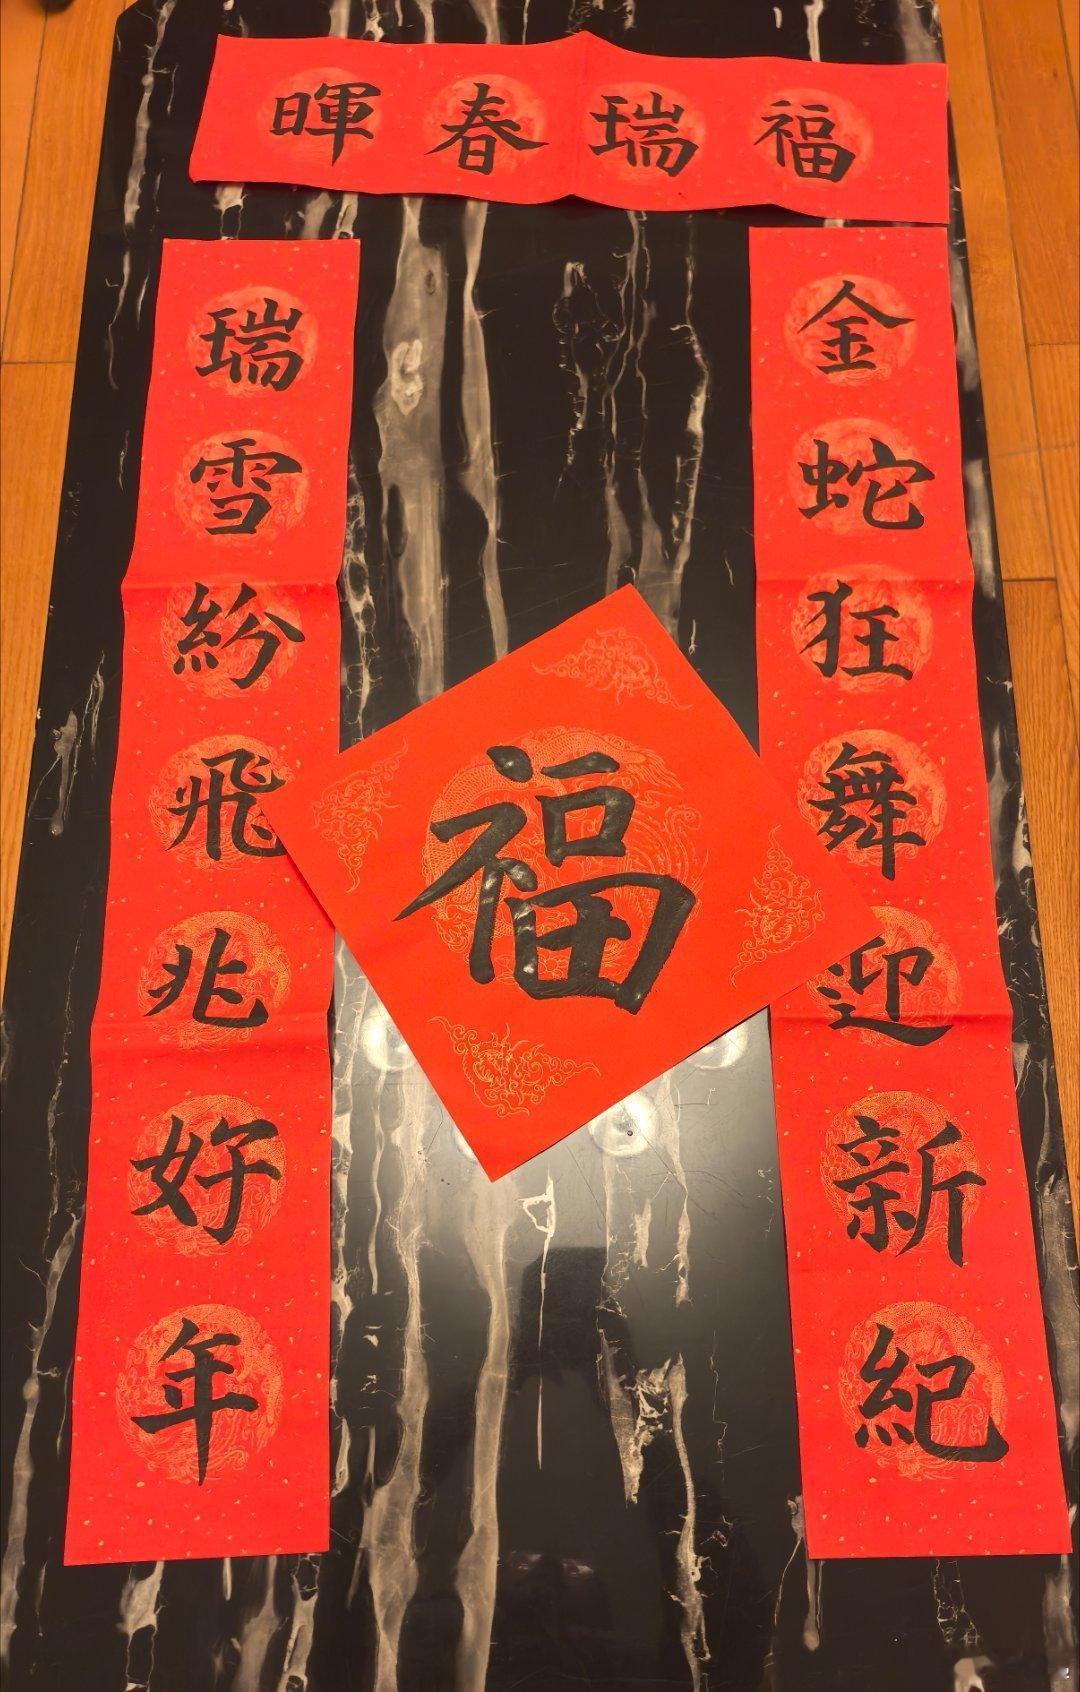 福瑞春暉
金蛇狂舞迎新紀
瑞雪紛飛兆好年
福